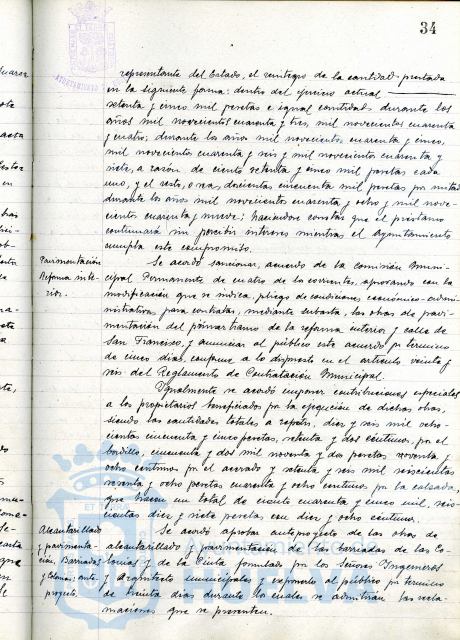 34
representante del Estado, el reintegro de la cantidad prestada
en la siguiente forma: dentro del ejercicio actual
setenta y cinco mil pesetas e igual cantidad durante los
años mil novecientos cuarenta y tres, mil novecientos cuarenta
y cuatro; durante los años mil novecientos cuarenta y cinco,
mil novecientos cuarenta y seis y mil novecientos cuarenta y
siete, a razón de ciento setenta y cinco mil pesetas cada
uno, y el resto, o sea, doscientas cincuenta mil pesetas por mitad
durante los años mil novecientos cuarenta y ocho y mil nove-
cientos cuarenta y nueve; haciéndose constar que el préstamo
continuará sin percibir intereses mientras el Ayuntamiento
cumpla este compromiso.
Pavimentación
Reforma inte-
rior.
Se acordó sancionar, acuerdo de la Comisión Muni-
cipal Permanente de cuatro de los corrientes, aprobando con la
modificación que se indica, pliego de condiciones económico-admi-
nistrativas para contratar, mediante subasta, las obras de pavi-
mentación del primer tramo de la reforma interior y calle de
San Francisco, y anunciar al público este acuerdo por término
de cinco días, conforme a lo dispuesto en el artículo veinte y
seis del Reglamento de Contratación Municipal.
Igualmente se acordó imponer contribuciones especiales
a los propietarios beneficiados por la ejecución de dichas obras,
siendo las cantidades totales a repartir, diez y seis mil ocho-
cientas cincuenta y cinco pesetas, setenta y dos céntimos por el
bordillo, cincuenta y dos mil noventa y dos pesetas noventa y
ocho céntimos por el acerado y setenta y seis mil seiscientas
sesenta y ocho pesetas cuarenta y ocho céntimos por la calzada,
que hacen un total de ciento cuarenta y cinco mil, seis-
cientas diez y siete pesetas con diez y ocho céntimos.
Alcantarillado
y pavimenta-
ción, Barriadas
y Colonias, ante-
proyecto.
Se acordó aprobar anteproyecto de las obras de
alcantarillado y pavimentación de las barriadas de las Co-
lonias y de la Cinta, formulado por los Señores Ingenieros
y Arquitecto municipales y exponerlo al público por término
de treinta días durante los cuales se admitirán las recla-
maciones que se presenten.